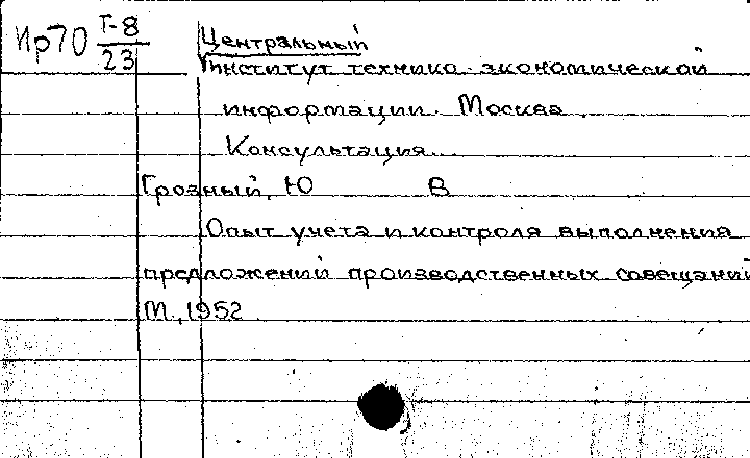 Ир70 Т-8
23
Центральный
Институт технико-экономической
информации. Москва.
Консультация...
Грозный, Ю В
Опыт учета и контроля выполнения
предложений производственных совещаний
М., 1952